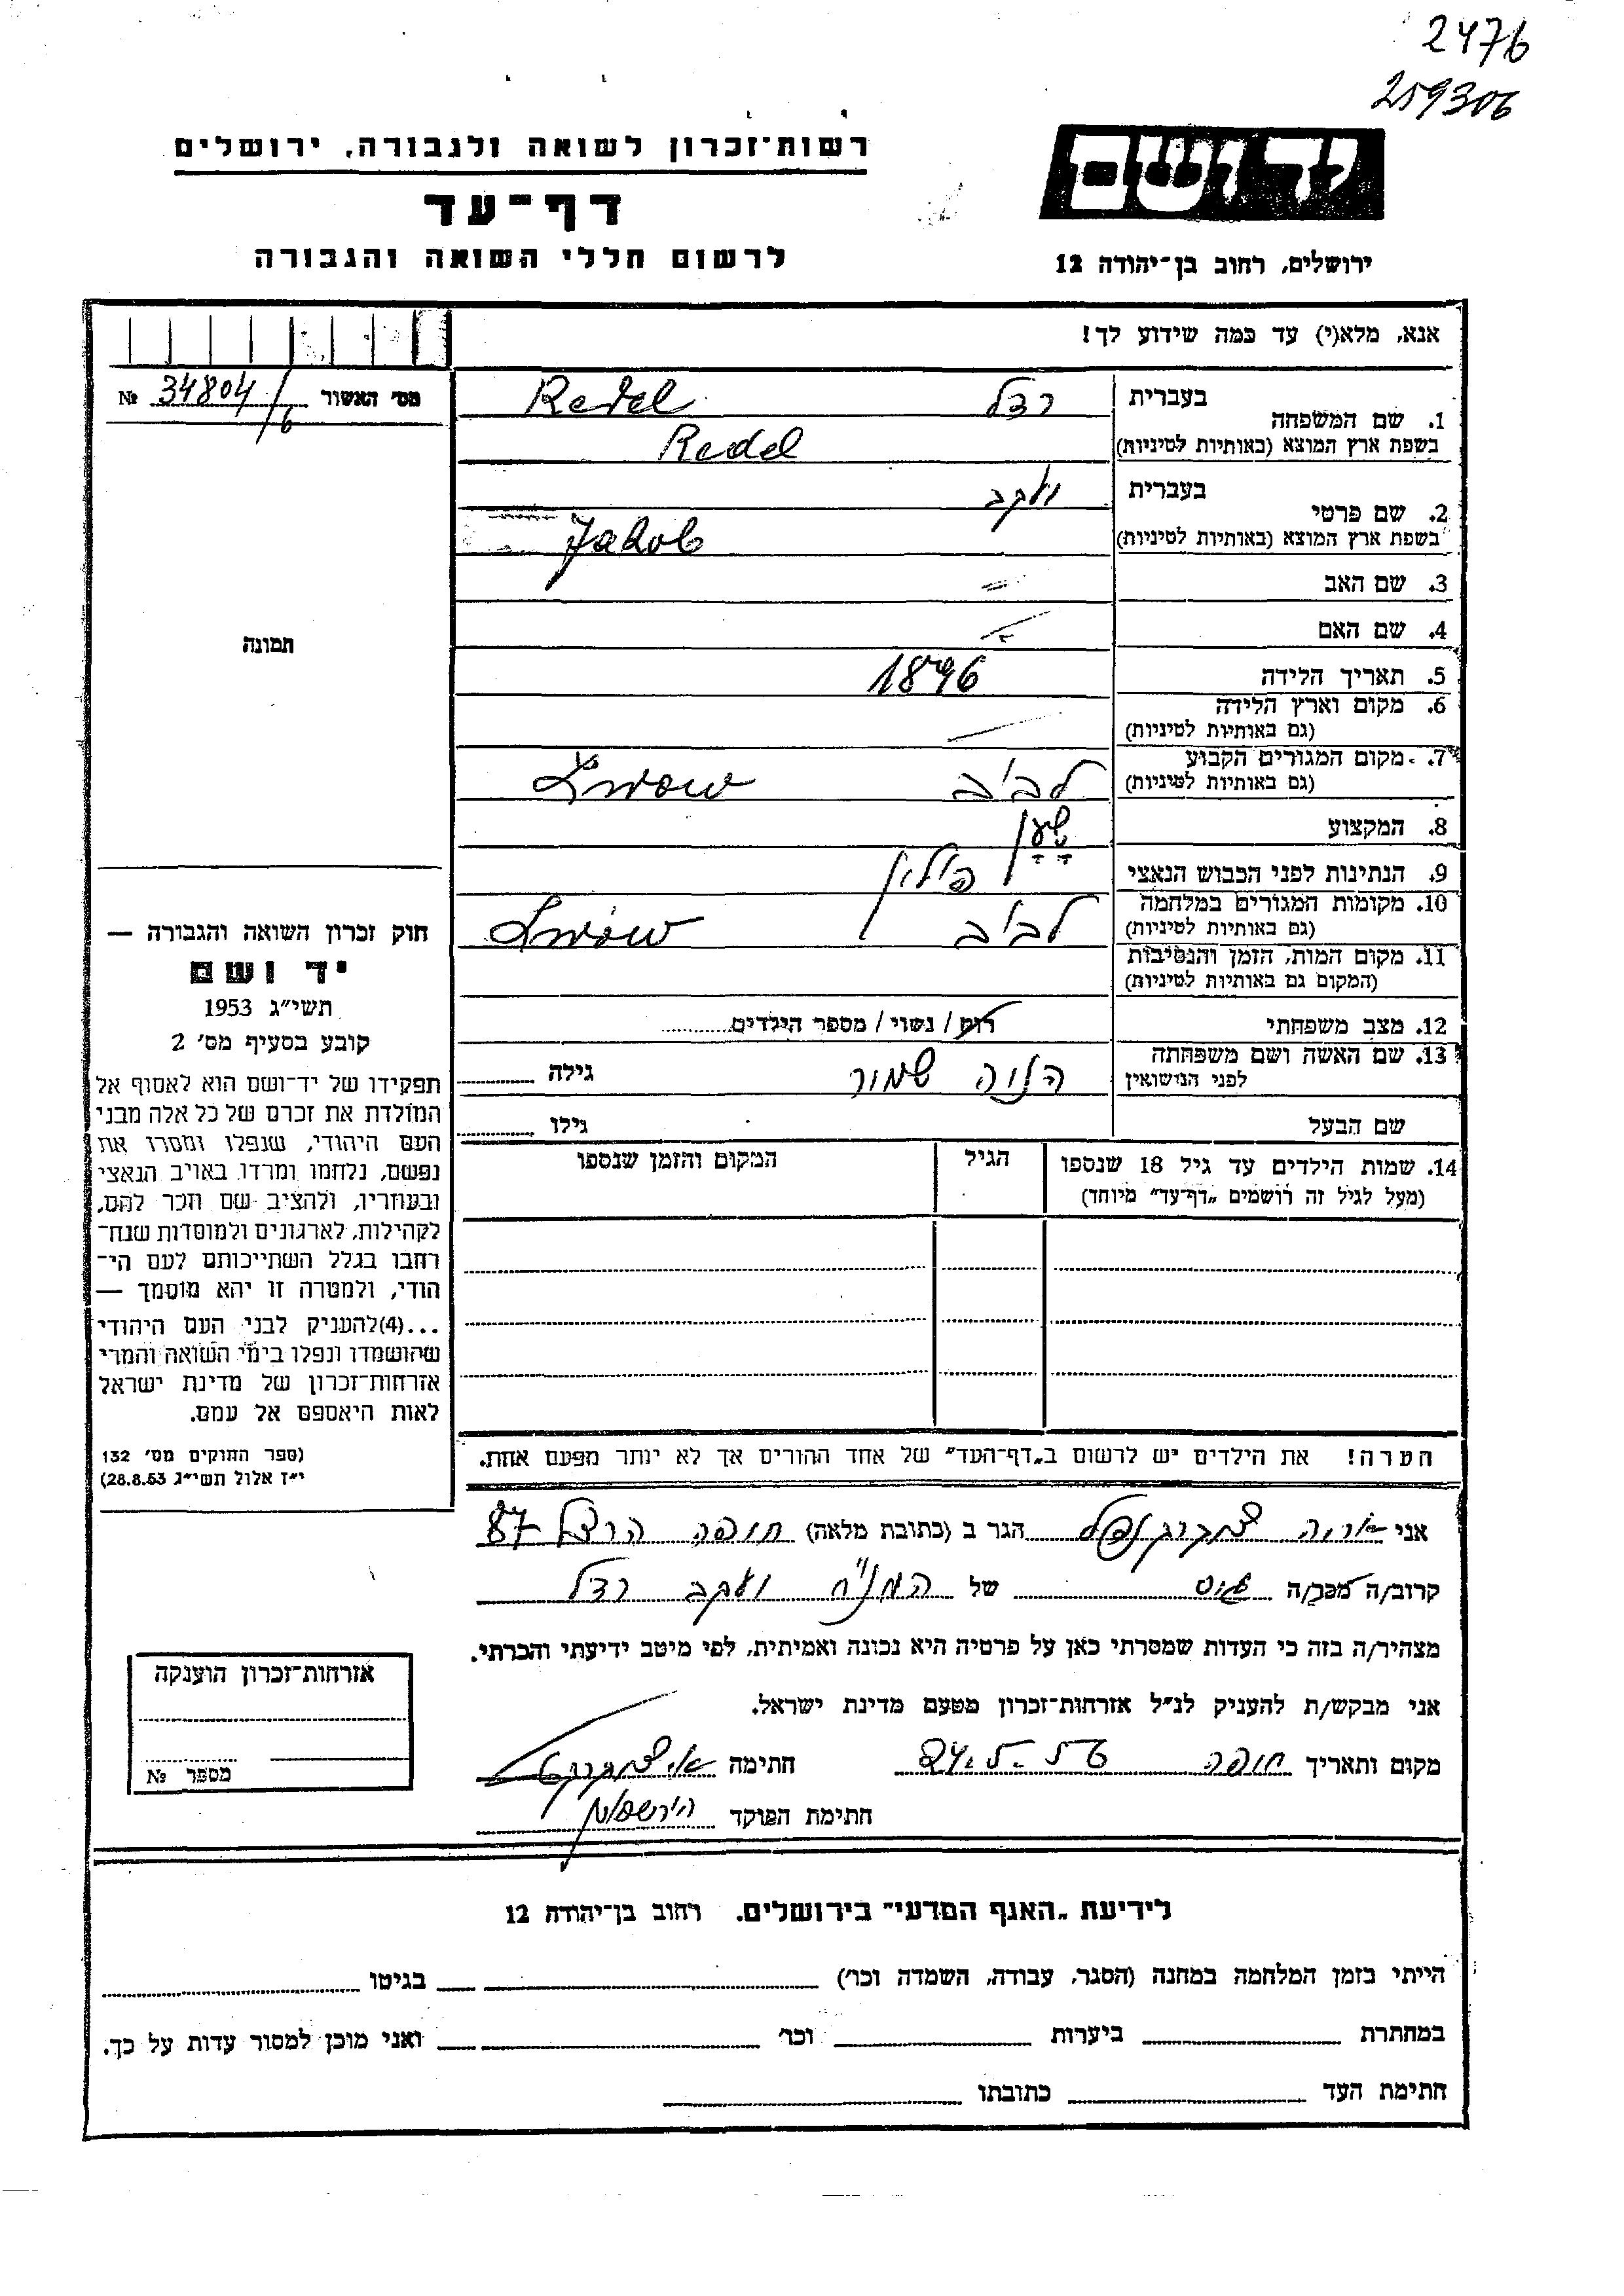 2476
259306
רשות־זכרון לשואה ולגבורה, ירושלים
דף־עד
לרשום חללי השואה והגבורה
יד ושם
ירושלים, רחוב בן־יהודה 12
אנא, מלא(י) עד כמה שידוע לך!
מס׳ האשור 34804/6 №
בעברית רדל Redel
1. שם המשפחה
בשפת ארץ המוצא (באותיות לטיניות) Redel
בעברית יעקב
2. שם פרטי
בשפת ארץ המוצא (באותיות לטיניות) Jakob
3. שם האב
4. שם האם
תמונה
5. תאריך הלידה 1896
6. מקום וארץ הלידה
(גם באותיות לטיניות)
7. מקום המגורים הקבוע
(גם באותיות לטיניות) לבוב Lwow
8. המקצוע שען
9. הנתינות לפני הכבוש הנאצי פולין
10. מקומות המגורים במלחמה
(גם באותיות לטיניות) לבוב Lwów
11. מקום המות, הזמן והנסיבות
(המקום גם באותיות לטיניות)
12. מצב משפחתי רוק / נשוי / מספר הילדים
13. שם האשה ושם משפחתה
לפני הנישואין גילה
שם הבעל גילו
14. שמות הילדים עד גיל 18 שנספו
(מעל לגיל זה רושמים „דף־עד״ מיוחד)
הגיל
המקום והזמן שנספו
חוק זכרון השואה והגבורה —
יד ושם
תשי״ג 1953
קובע בסעיף מס׳ 2
תפקידו של יד־ושם הוא לאסוף אל
המולדת את זכרם של כל אלה מבני
העם היהודי, שנפלו ומסרו את
נפשם, נלחמו ומרדו באויב הנאצי
ובעוזריו, ולהציב שם וזכר להם,
לקהילות, לארגונים ולמוסדות שנח־
רחבו בגלל השתייכותם לעם הי־
הודי, ולמטרה זו יהא מוסמך —
...(4)להעניק לבני העם היהודי
שהושמדו ונפלו בימי השואה והמרי
אזרחות־זכרון של מדינת ישראל
לאות היאספם אל עמם.
(ספר החוקים מס׳ 132
י״ז אלול תשי״ג 28.8.53)
הערה! את הילדים יש לרשום ב„דף־העד״ של אחד ההורים אך לא יותר מפעם אחת.
אני הגר ב (כתובת מלאה) חיפה הרצל 87
קרוב/ה מכר/ה גיס של המנ״ח יעקב רדל
מצהיר/ה בזה כי העדות שמסרתי כאן על פרטיה היא נכונה ואמיתית, לפי מיטב ידיעתי והכרתי.
אני מבקש/ת להעניק לנ״ל אזרחות־זכרון מטעם מדינת ישראל.
מקום ותאריך חיפה חתימה
חתימת הפוקד
אזרחות־זכרון הוענקה
מספר №
לידיעת „האגף המדעי״ בירושלים, רחוב בן־יהודה 12
הייתי בזמן המלחמה במחנה (הסגר, עבודה, השמדה וכו׳) בגיטו
במחתרת ביערות וכו׳ ואני מוכן למסור עדות על כך.
חתימת העד כתובתו